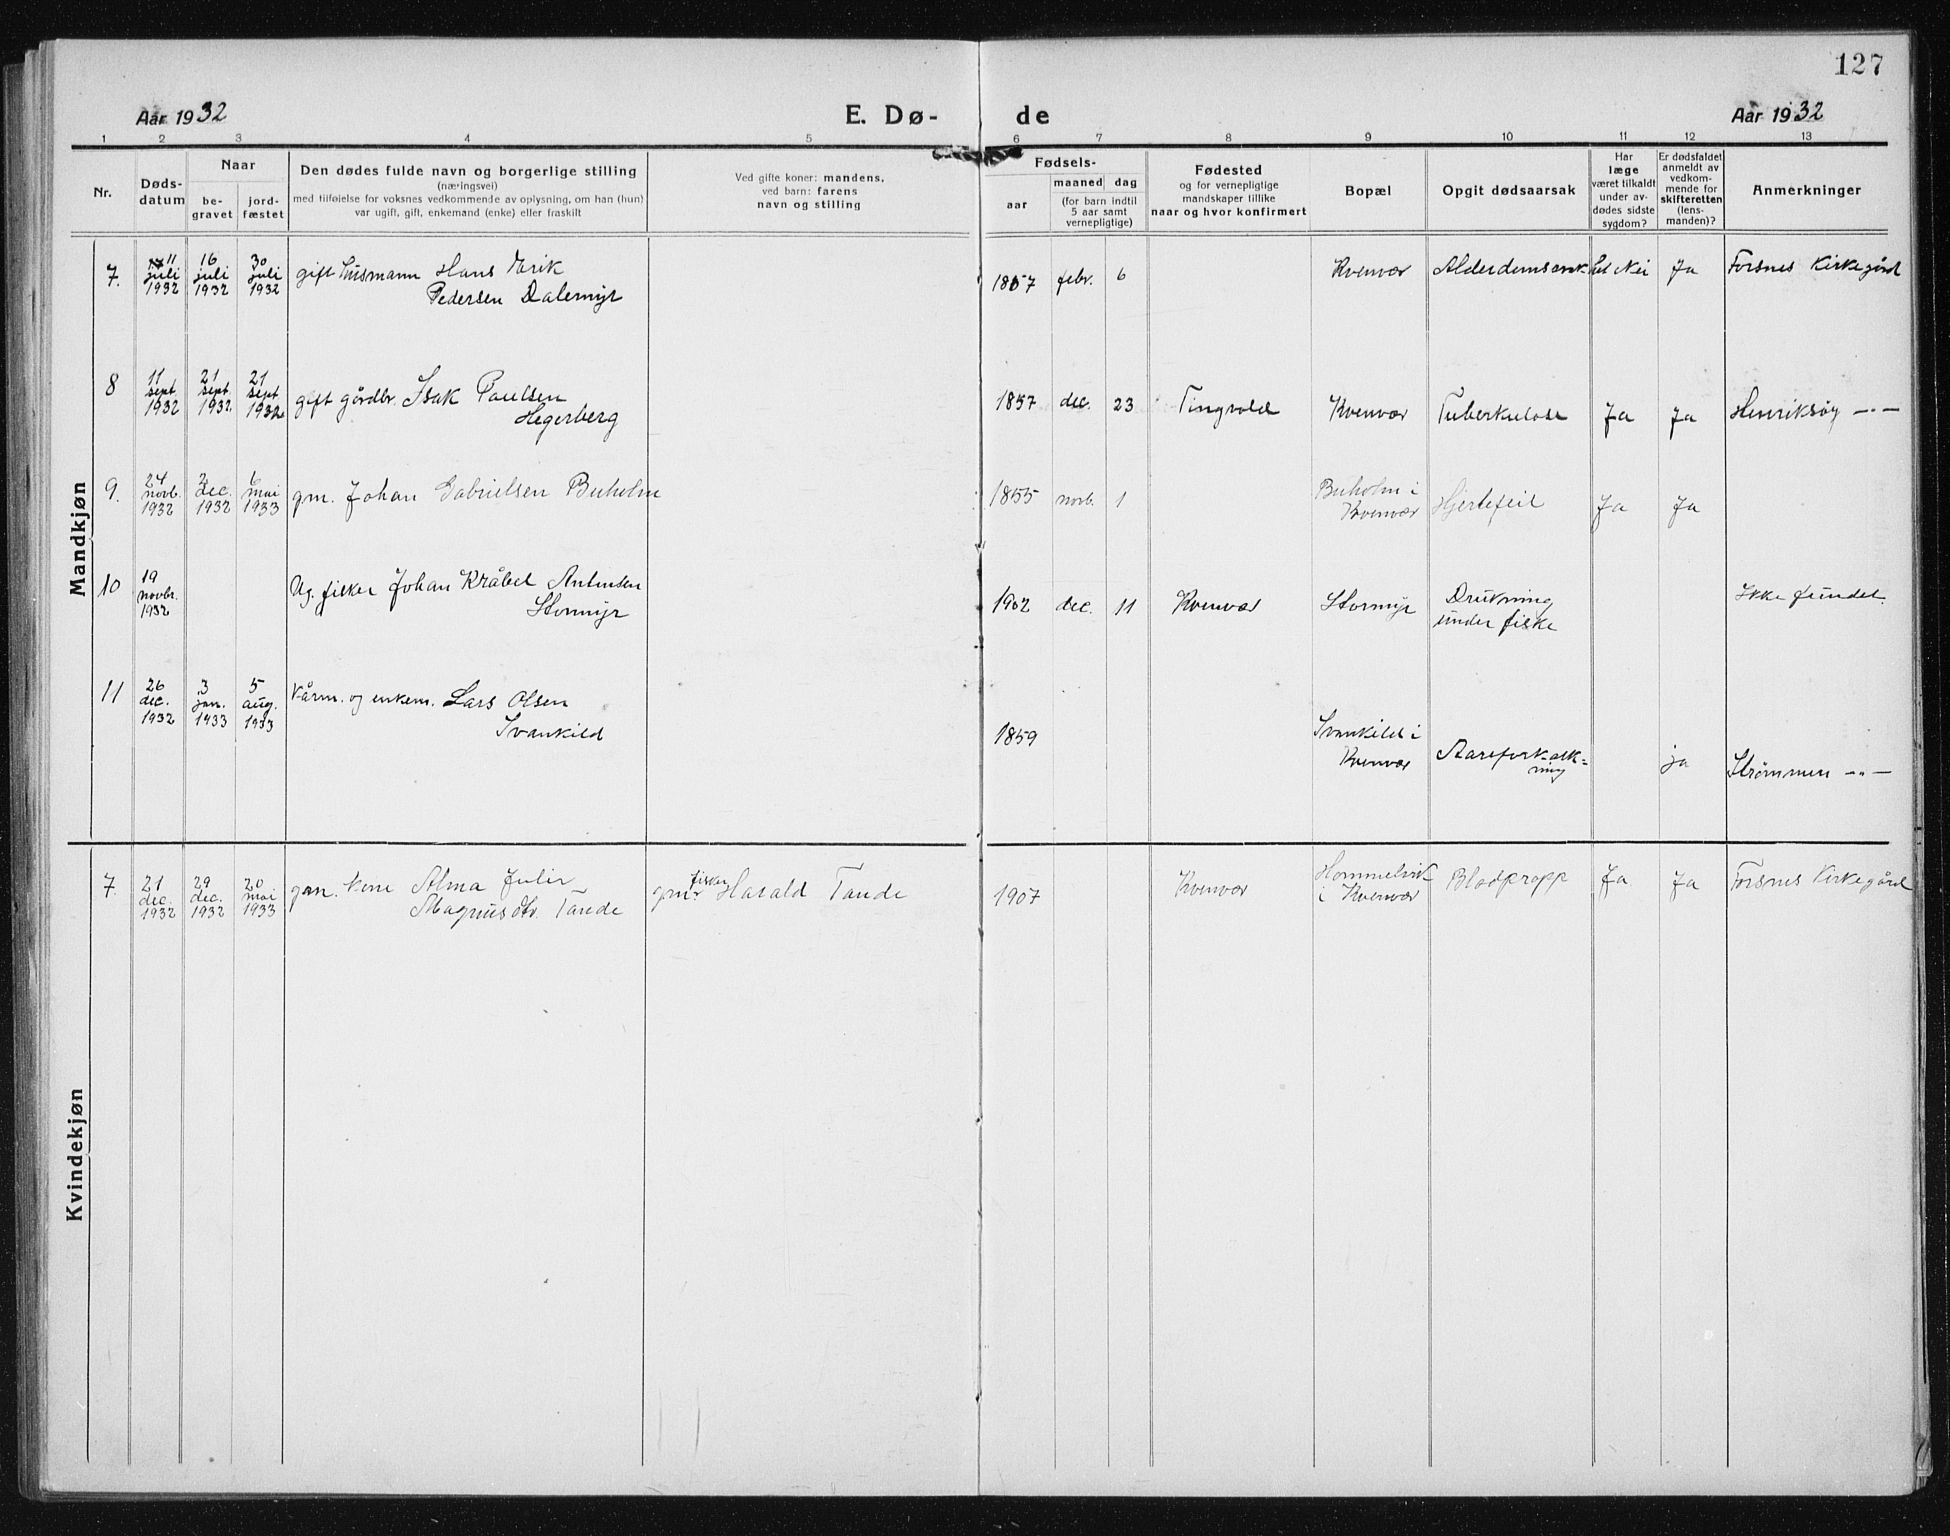 127
Aar 1932 E. Dø- de Aar 1932
1 2 3 4 5 6 7 8 9 10 11 12 13
Nr.
Døds-
datum
Naar
be-
gravet
jord-
fæstet
Den dødes fulde navn og borgerlige stilling
(næringsvei)
med tilføielse for voksnes vedkommende av oplysning, om han (hun)
var ugift, gift, enkemand (enke) eller fraskilt
Ved gifte koner: mandens,
ved barn: farens
navn og stilling
Fødsels-
aar
maaned dag
(for barn indtil
5 aar samt
vernepligtige)
Fødested
og for vernepligtige
mandskaper tillike
naar og hvor konfirmert
Bopæl
Opgit dødsaarsak
Har
læge
været tilkaldt
under av-
dødes sidste
sygdom?
Er dødsfaldet
anmeldt av
vedkom-
mende for
skifteretten
(lens-
manden)?
Anmerkninger
Mandkjøn
7. 11 juli 1932 16 juli 1932 30 juli 1932 gift husmann Hans Erik
Pedersen Dalemyr
1857 febr. 6 Kvenvær Nei Ja Forsnes Kirkegård
8 11 sept. 1932 21 sept. 1932 21 sept 1932 gift gårdbr. Isak Paulsen
Hegerberg
1857 dec. 23 Tingvold Kvenvær Tuberkulose Ja Ja Henriksøy —"—
9. 24 novb. 1932 2 dec. 1932 6 mai 1933 gm. Johan Gabrielsen Buholm
1855 novb. 1 Buholm i
Kvenvær Hjertefeil Ja Ja
10 19 novbr. 1932 Ug. fisker Johan Kråbel Antonsen
Stormyr
1902 dec. 11 Kvenvær Stormyr Drukning
under fiske Ikke fundet.
11 26 dec. 1932 3 jan. 1933 5 aug. 1933 Kårm. og enkem. Lars Olsen
Svankild
1859 Svankild i
Kvenvær Aareforkalk-
ning ja Strømmen —"—
Kvindekjøn
7. 21 dec. 1932 29 dec. 1932 20 mai 1933 gm. kone Alma Julie
Magnusdtr. Tande
gm. fisker Harald Tande
1907 Kvenvær Hammelvik
i Kvenvær Blodpropp Ja Ja Forsnes Kirkegård